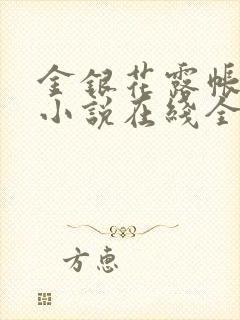 金銀花露帳
小說在綫全
方惠